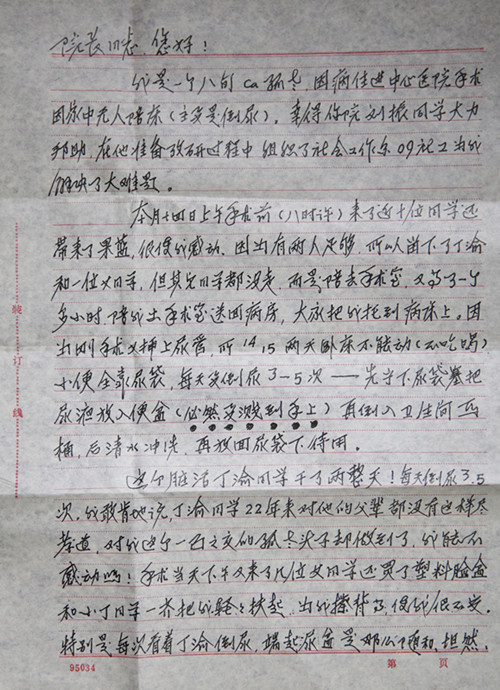 院长同志，您好！
我是一个八旬ca孤老，因病住进中心医院手术
因家中无人陪床（主要是倒尿），幸得你院刘振同学大力
邦助，在他准备考研过程中组织了社会工作系09社工为我
解决了大难题。
本月十四日上午手术前（八时许）来了近十位同学还
带来了果蓝，很使我感动，因当有两人足够，所以留下了丁渝
和一位女同学，但其它同学都没走，而是陪去手术室，又等了一个
多小时，陪我出手术室送回病房，大家把我抬到病床上。因
当刚手术又插上尿管，所14.15两天卧床不能动（不吃喝）
小便全靠尿袋，每天要倒尿3-5次——先于下尿袋塞把
尿液放入便盆（必然要溅到手上）再倒入卫生间马
桶，后清水冲洗，再放回尿袋下待用。
这个脏活丁渝同学干了两整天！每天倒尿3.5
次，我敢肯地说，丁渝同学22年来对他的父辈都没有这样尽
孝道，对我这个一面之交的孤老头子却做到了，我能不
感动吗！手术当天下午又来了几位女同学还买了塑料脸盆
和小丁同学一齐把我轻轻扶起，为我擦背，使我很不安，
特别是每次看着丁渝倒尿，端起尿盆是那么随和，坦然，
装订线
95034
第 页